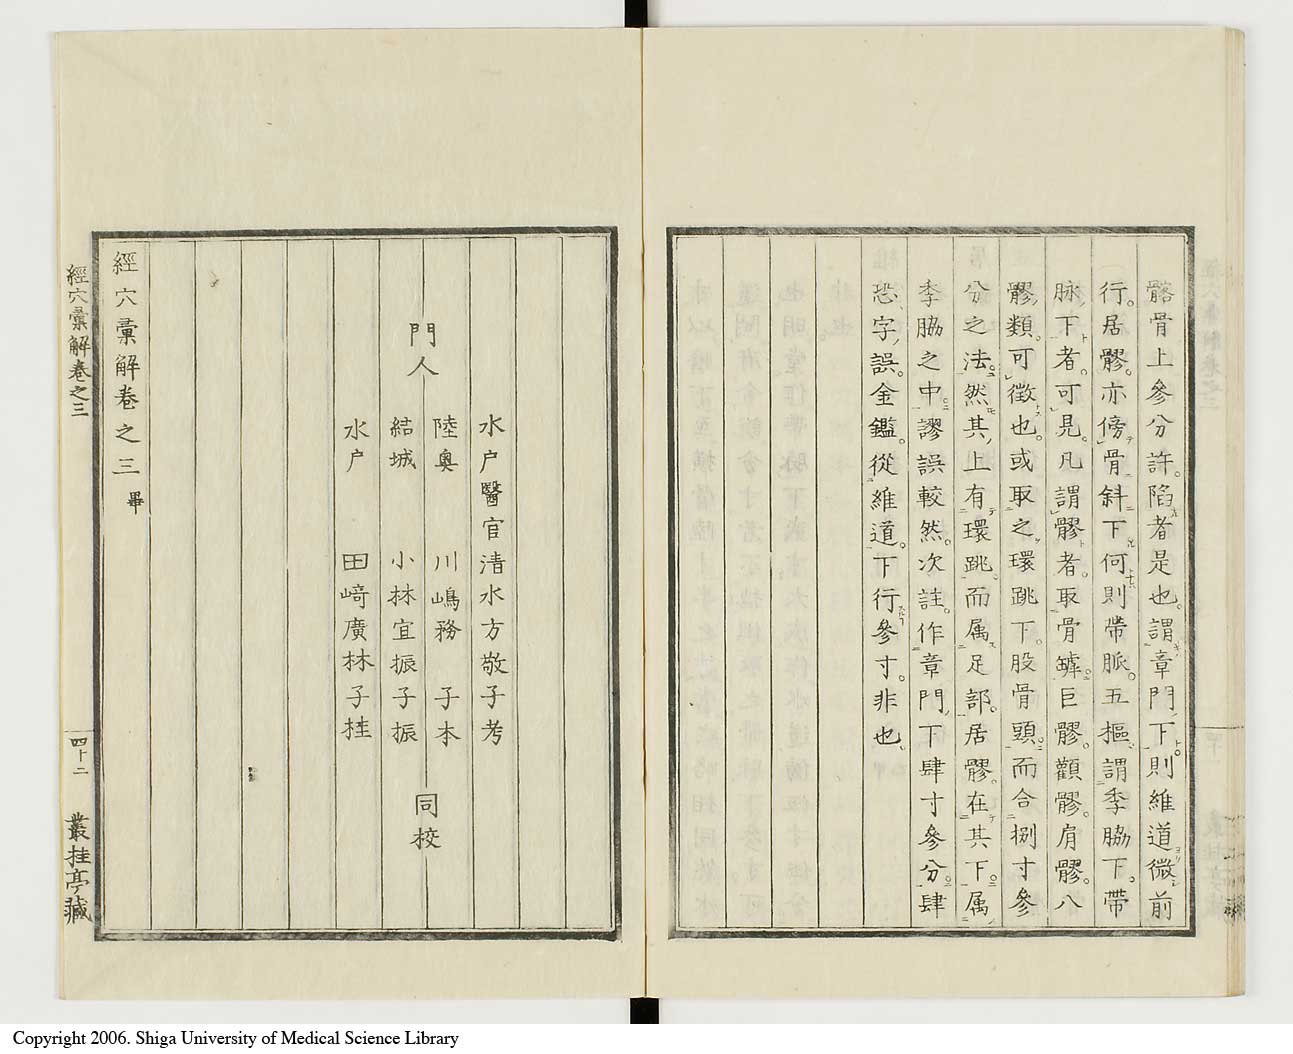 髂骨上參分許。陷者是也。謂章門下。則維道微前
行。居髎。亦傍骨斜下何。則帶脈。五樞。謂季脇下。帶
脉下者。可見。凡謂髎者。取骨罅。巨髎。顴髎。肩髎。八
髎類。可徵也。或取之環跳下。股骨頭。而合捌寸參
分之法。然其上有環跳。而属足部。居髎。在其下。属
季脇之中。謬誤較然。次註。作章門下肆寸參分。肆
恐字誤。金鑑。從維道。下行參寸。非也
門人
水户醫官清水方敬子考
陸奥 川嶋務 子本
結城 小林宜振子振
水户 田﨑廣林子桂
同校
經穴彙解卷之三 畢
經穴彙解卷之三
四十二
叢挂亭藏
Copyright 2006. Shiga University of Medical Science Library